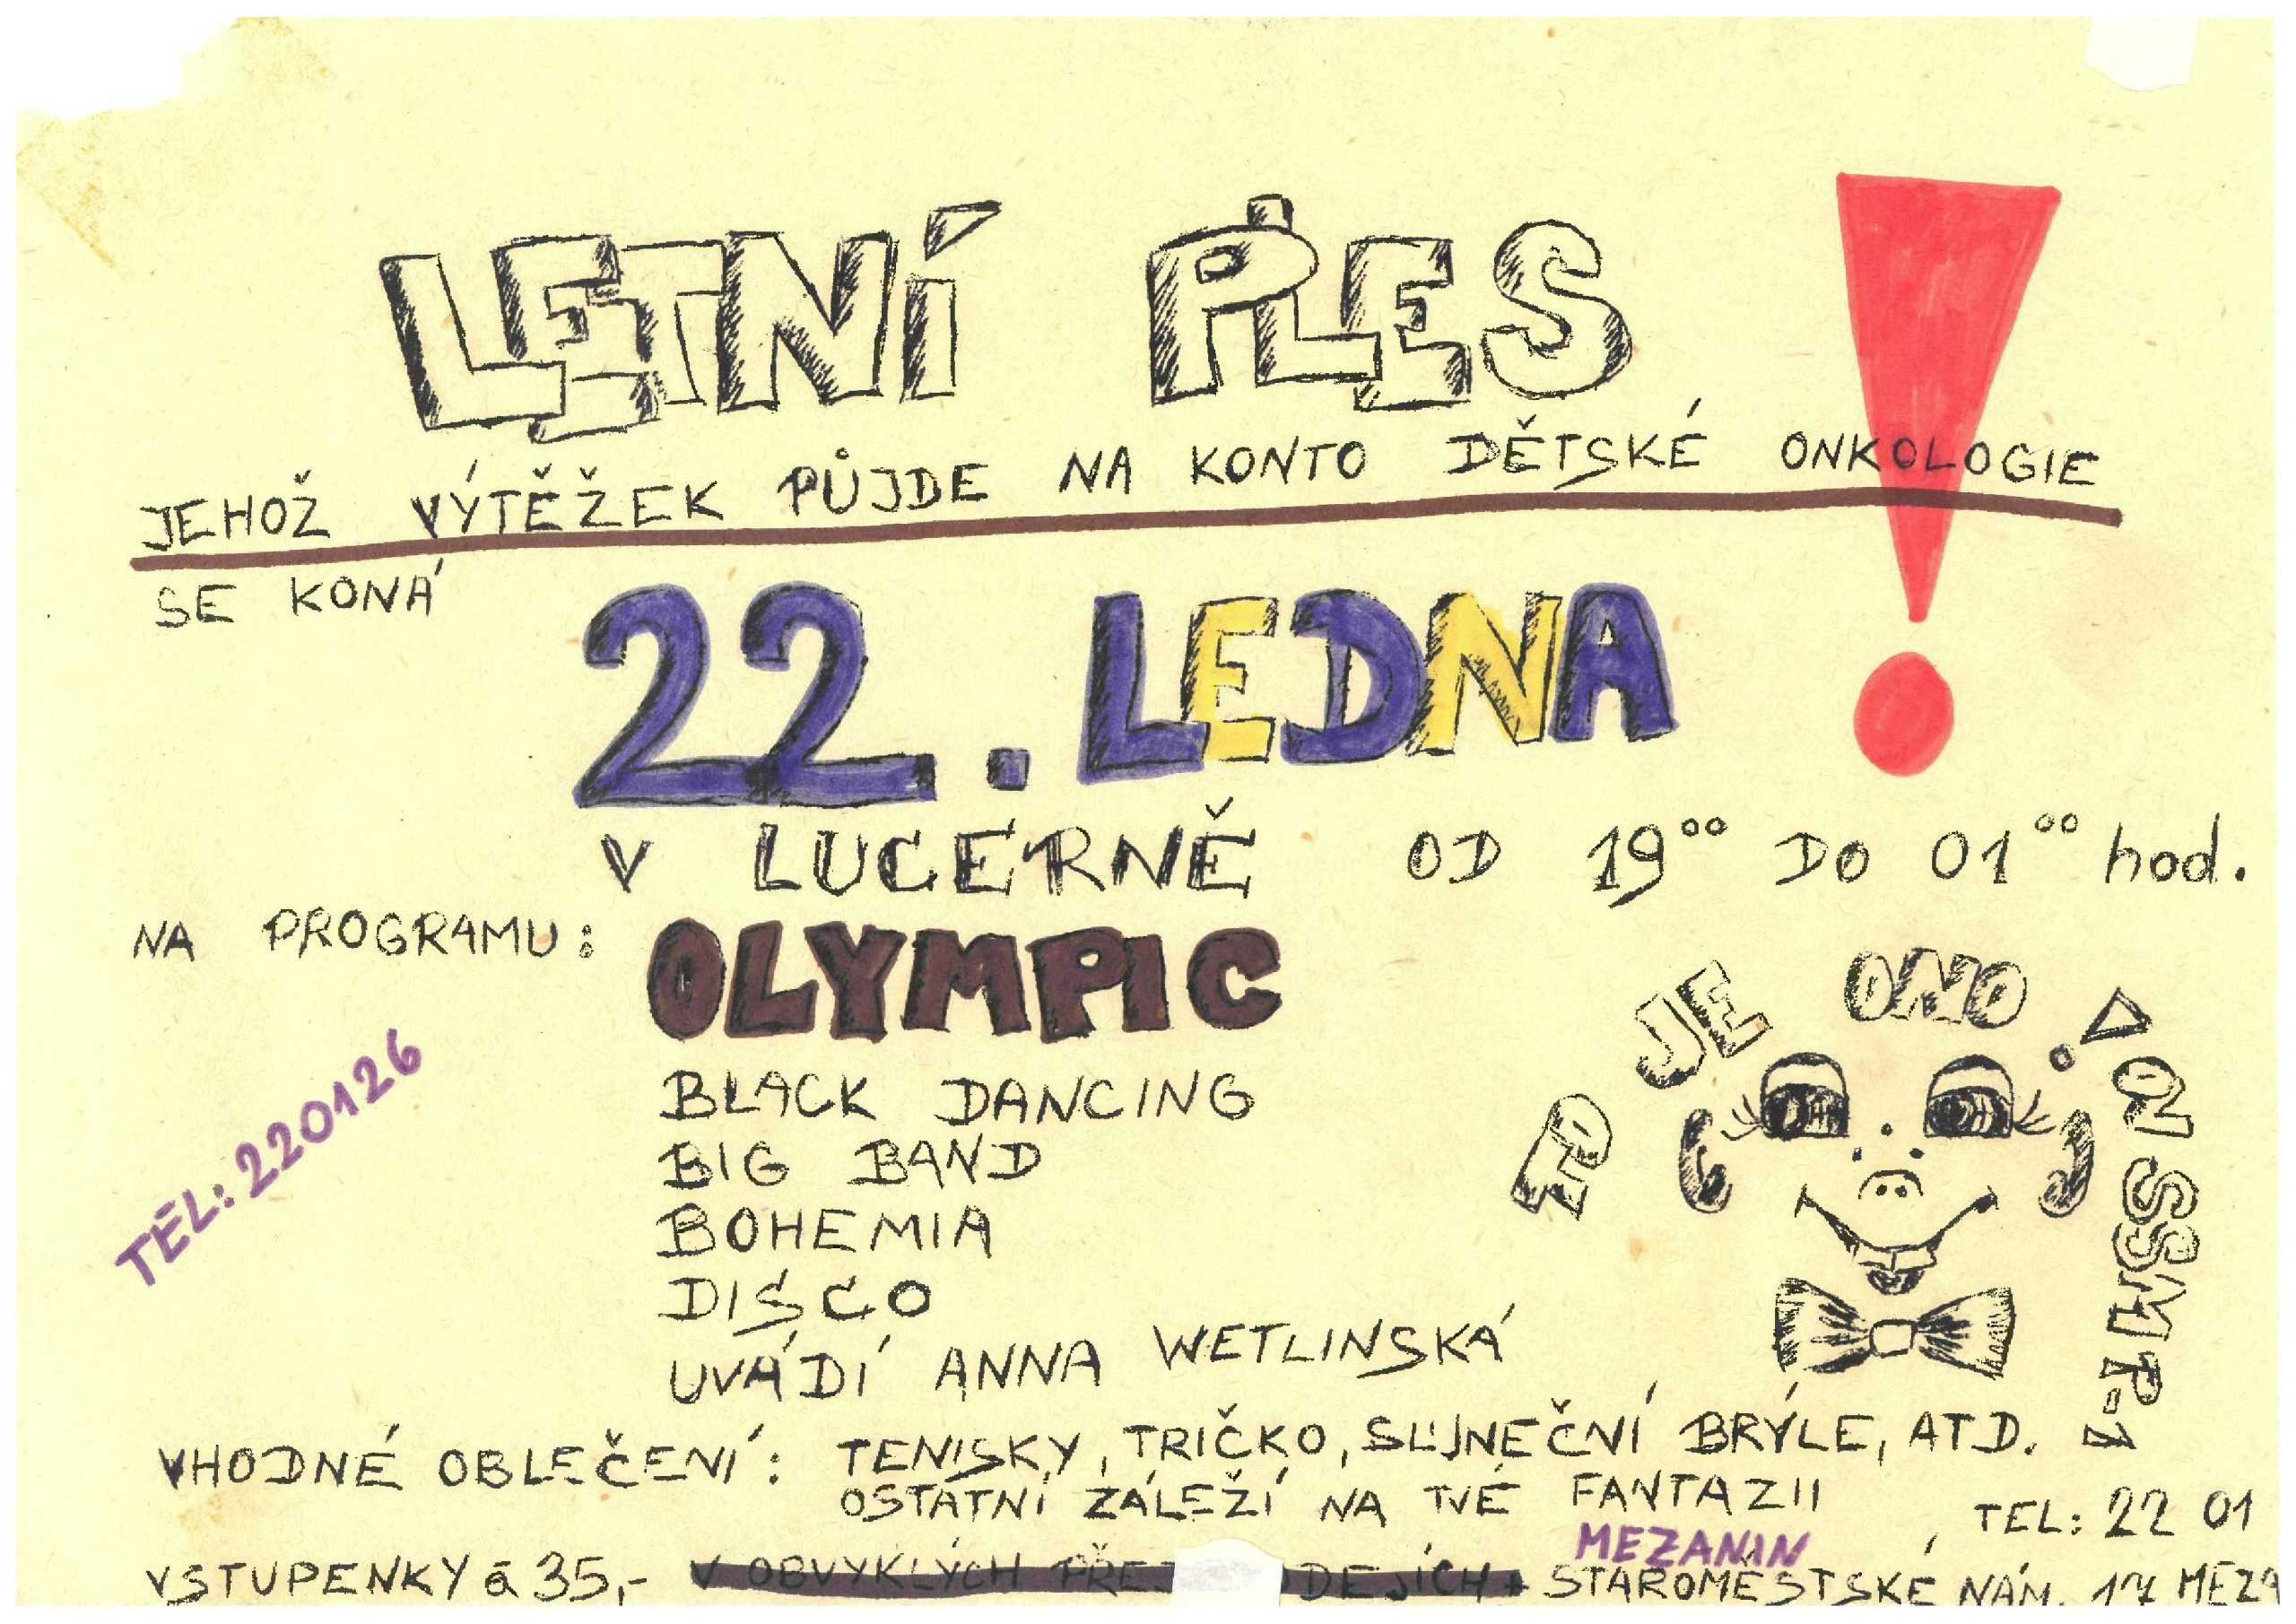 LETNÍ PLES !
JEHOŽ VÝTĚŽEK PŮJDE NA KONTO DĚTSKÉ ONKOLOGIE
SE KONÁ
22. LEDNA
V LUCERNĚ OD 19⁰⁰ DO 01⁰⁰ hod.
NA PROGRAMU: OLYMPIC
BLACK DANCING
BIG BAND
BOHEMIA
DISCO
UVÁDÍ ANNA WETLINSKÁ
TEL: 220126
JE ONO !
VHODNÉ OBLEČENÍ: TENISKY, TRIČKO, SLUNEČNÍ BRÝLE, ATD.
OSTATNÍ ZÁLEŽÍ NA TVÉ FANTAZII
TEL: 22 01
MEZANIN
VSTUPENKY á 35,- V OBVYKLÝCH STAROMĚSTSKÉ NÁM. 17 MEZA